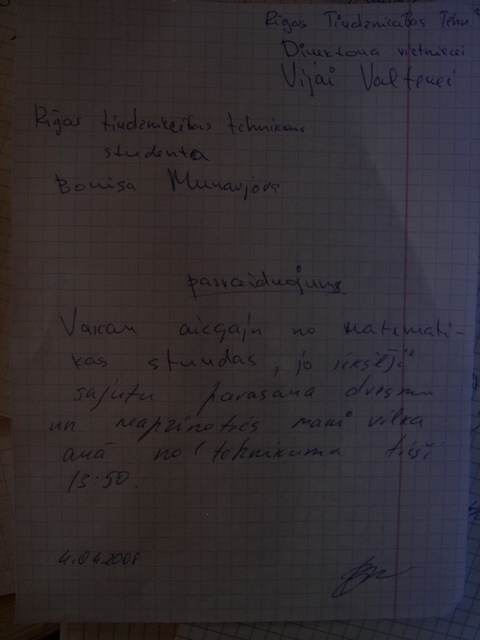 Rīgas Tirdzniecības Tehn
Direktora vietniecei
Vijai Valterei
Rīgas tirdzniecības tehnikuma
studenta
Borisa Muravjova
paskaidrojums
Vakar aizgāju no matemāti-
kas stundas, jo iekšēji
sajutu pavasara dvesmu
un neapzināties mani vilka
ārā no tehnikuma tieši
13:50.
4.04.2008